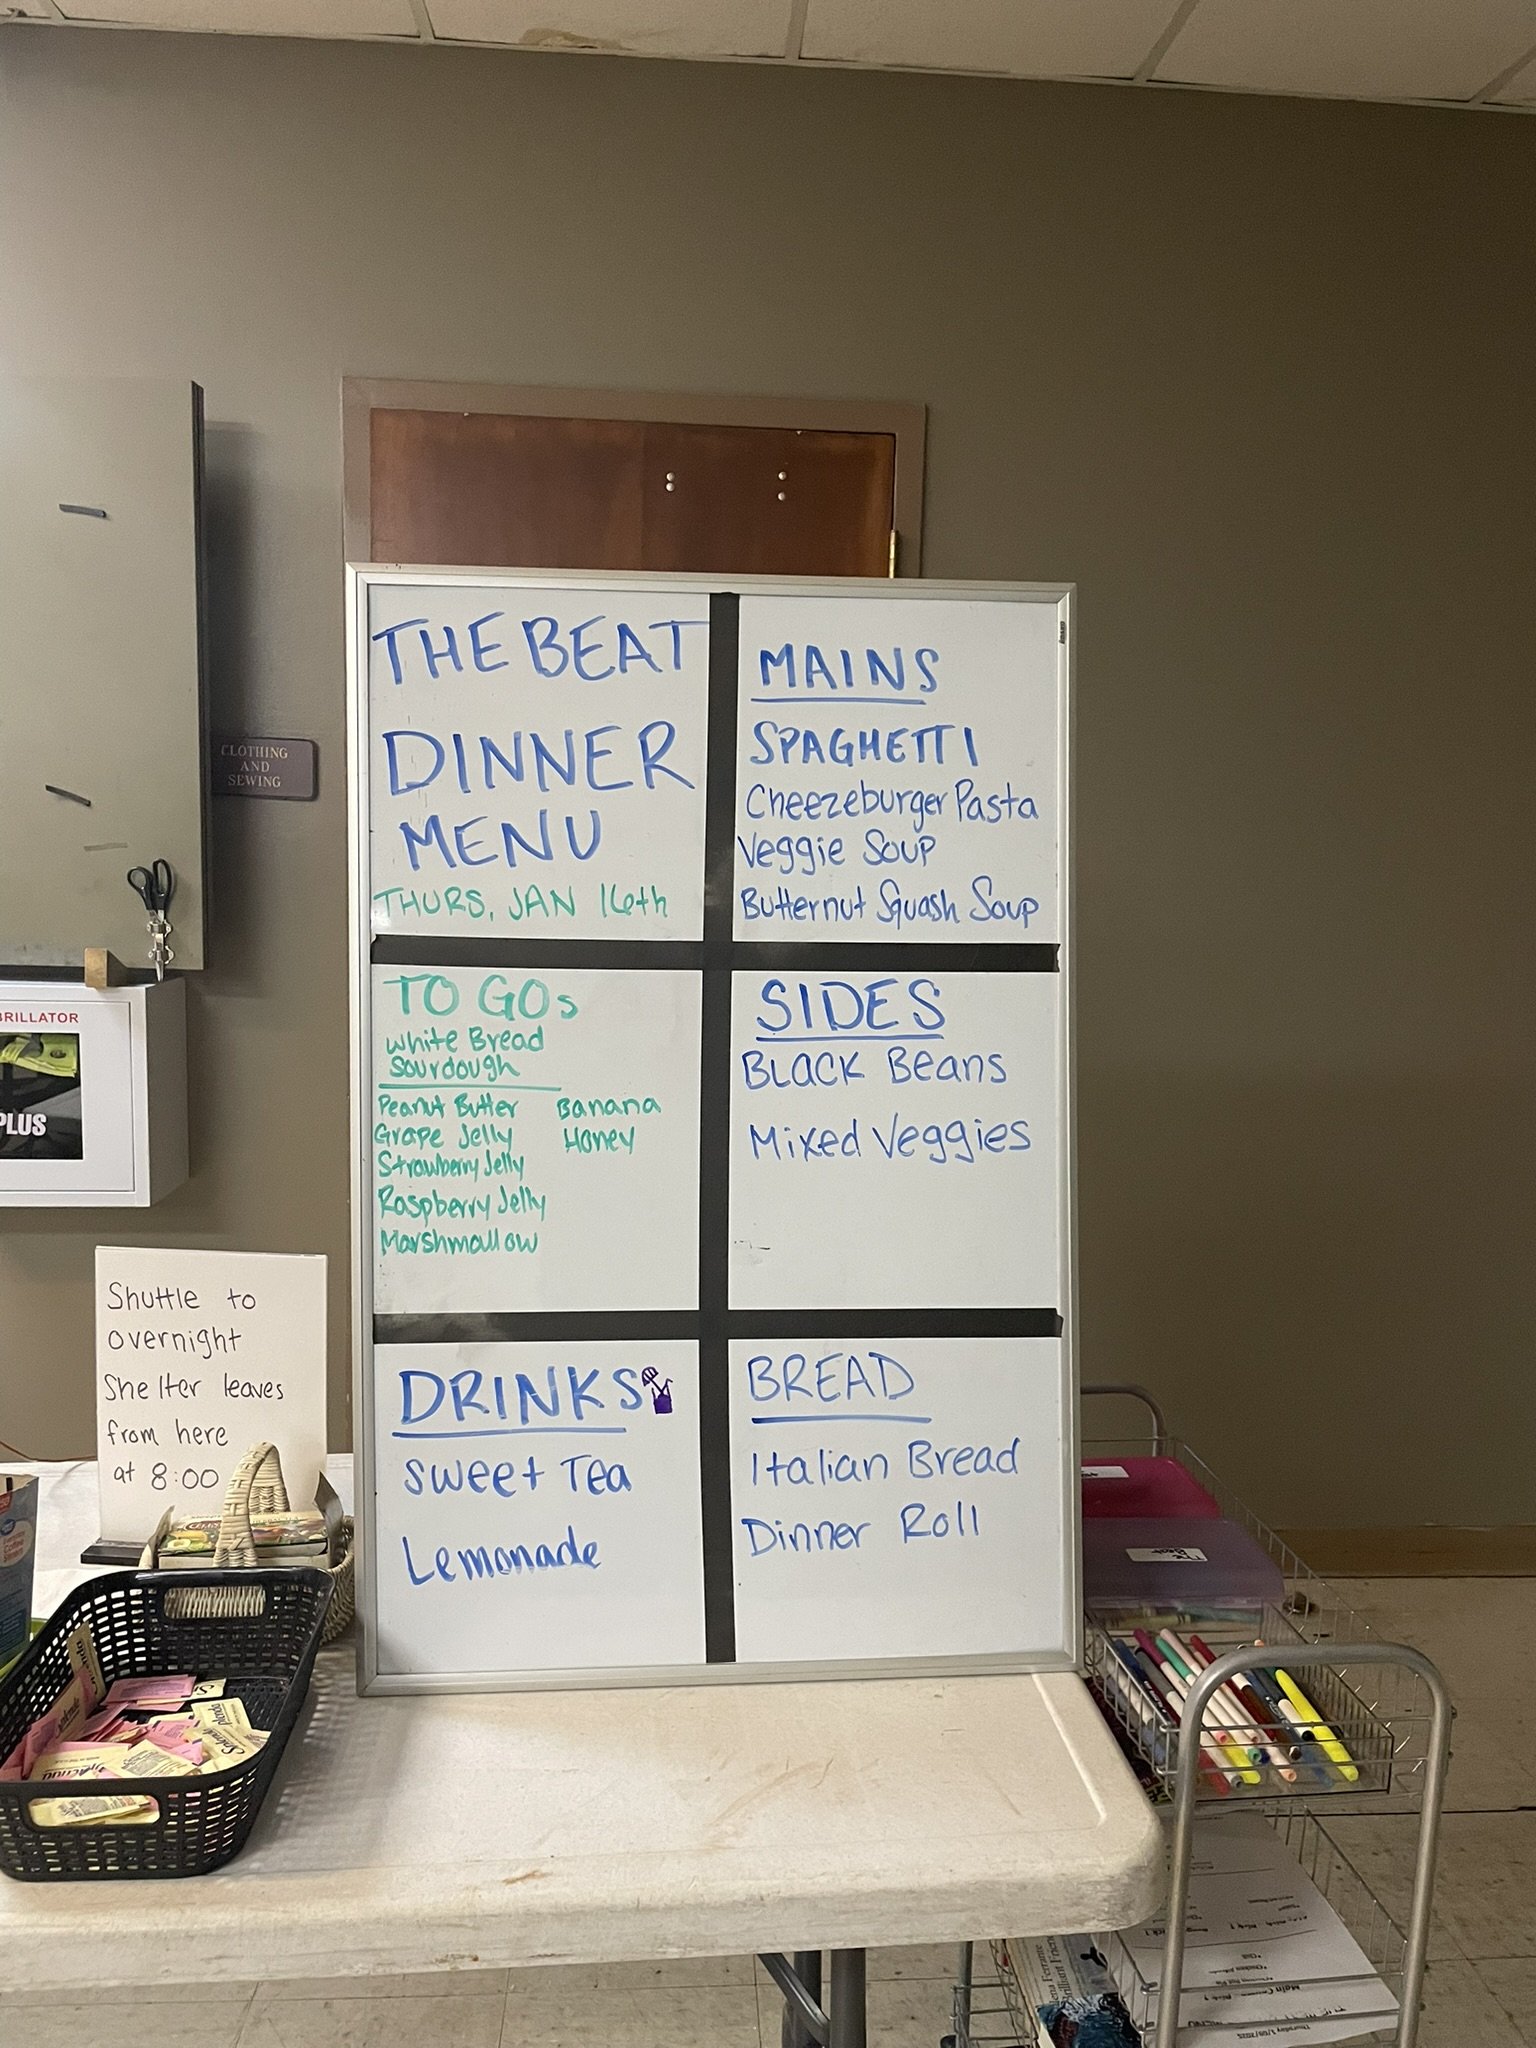 THE BEAT
DINNER
MENU
THURS, JAN 16th
MAINS
SPAGHETTI
Cheezeburger Pasta
Veggie Soup
Butternut Squash Soup
TO GOs
White Bread
Sourdough
Peanut Butter
Grape Jelly
Strawberry Jelly
Raspberry Jelly
Marshmallow
Banana
Honey
SIDES
BLACK Beans
Mixed Veggies
DRINKS
Sweet Tea
Lemonade
BREAD
Italian Bread
Dinner Roll
CLOTHING
AND
SEWING
BRILLATOR
PLUS
Shuttle to
overnight
Shelter leaves
from here
at 8:00
The
Beat
Splenda
Thursday 1/09/2025